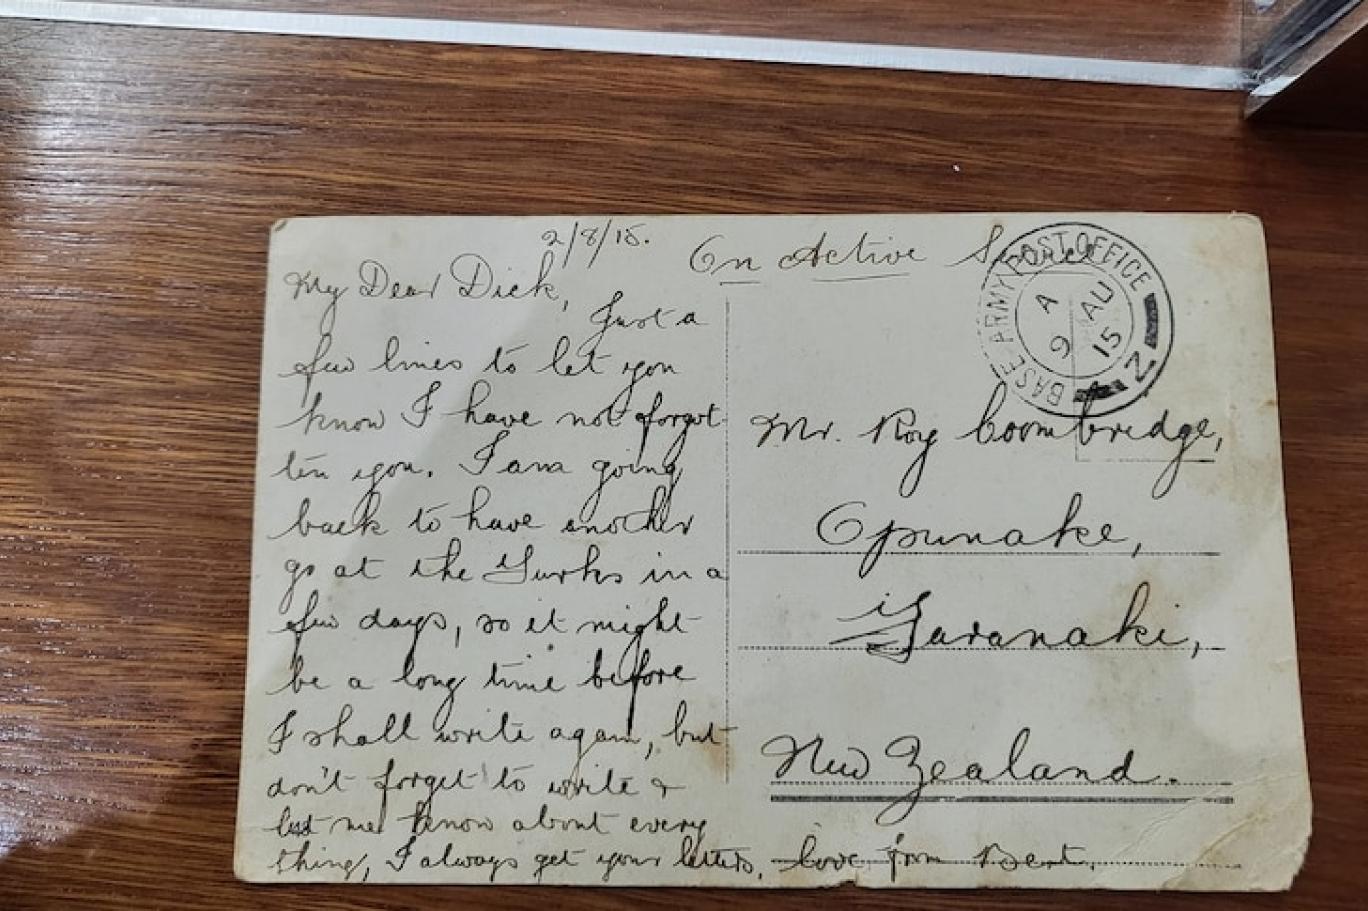 2/8/15.
On Active Service
My Dear Dick,
Just a
few lines to let you
know I have not forgot
ten you. I am going
back to have another
go at the Turks in a
few days, so it might
be a long time before
I shall write again, but
don't forget to write &
let me know about every
thing, I always get your letters, love from Bert.
BASE ARMY POST OFFICE
Z
A
9 AU
15
Mr. Roy Coombridge,
Opunake,
Taranaki,
New Zealand.